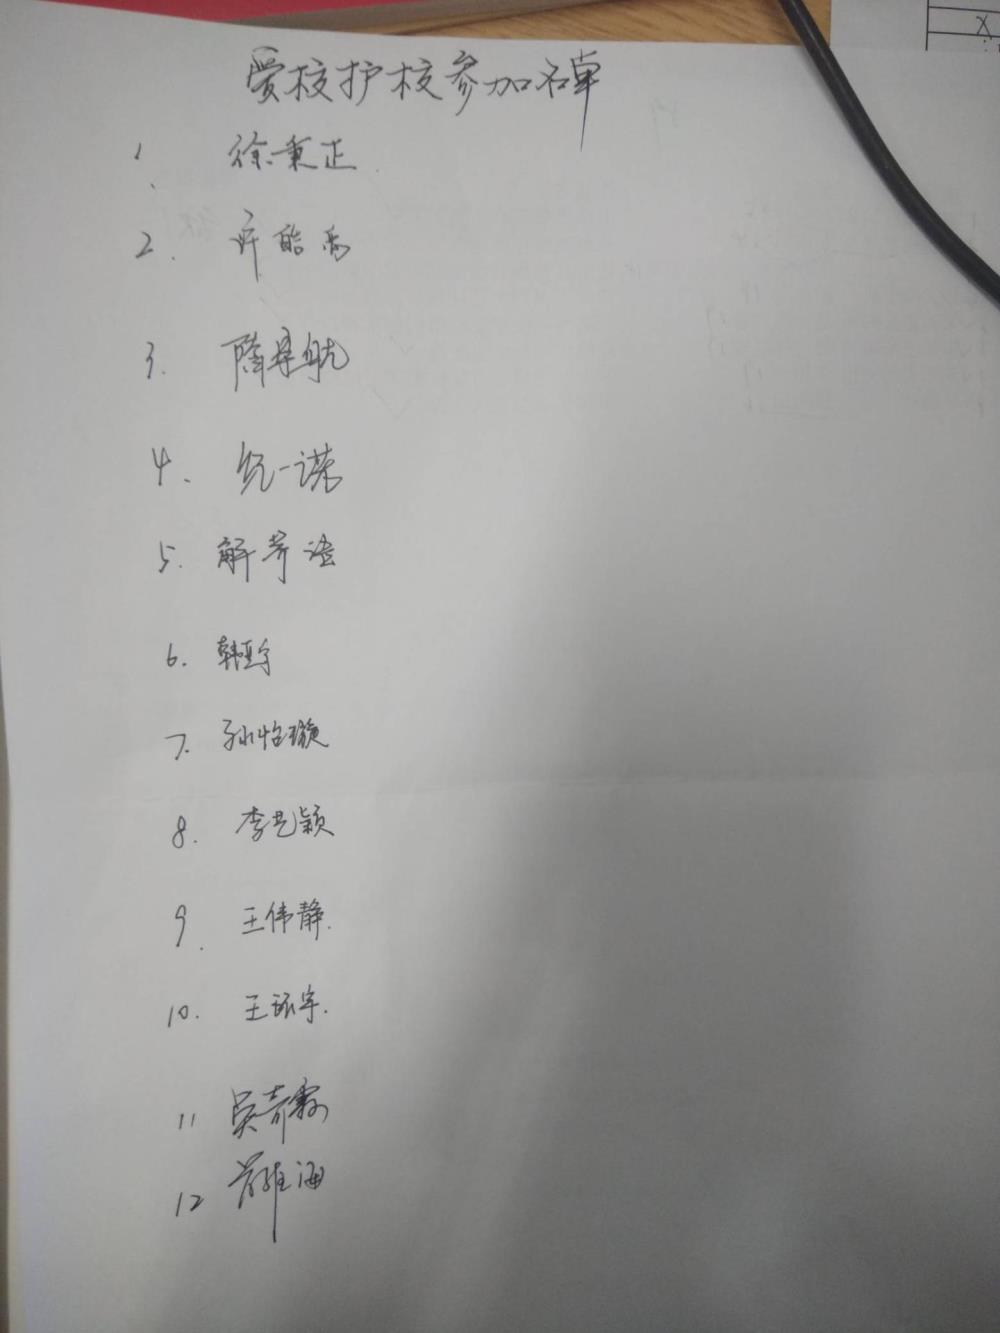 爱校护校参加名单
1. 徐秉正
2. 许皓禹
3. 隋星航
4. 倪一诺
5. 解芳语
6. 韩亚宁
7. 孙怡璇
8. 李艺颖
9. 王伟静.
10. 王环宇.
11 吴奇霖
12 海
X